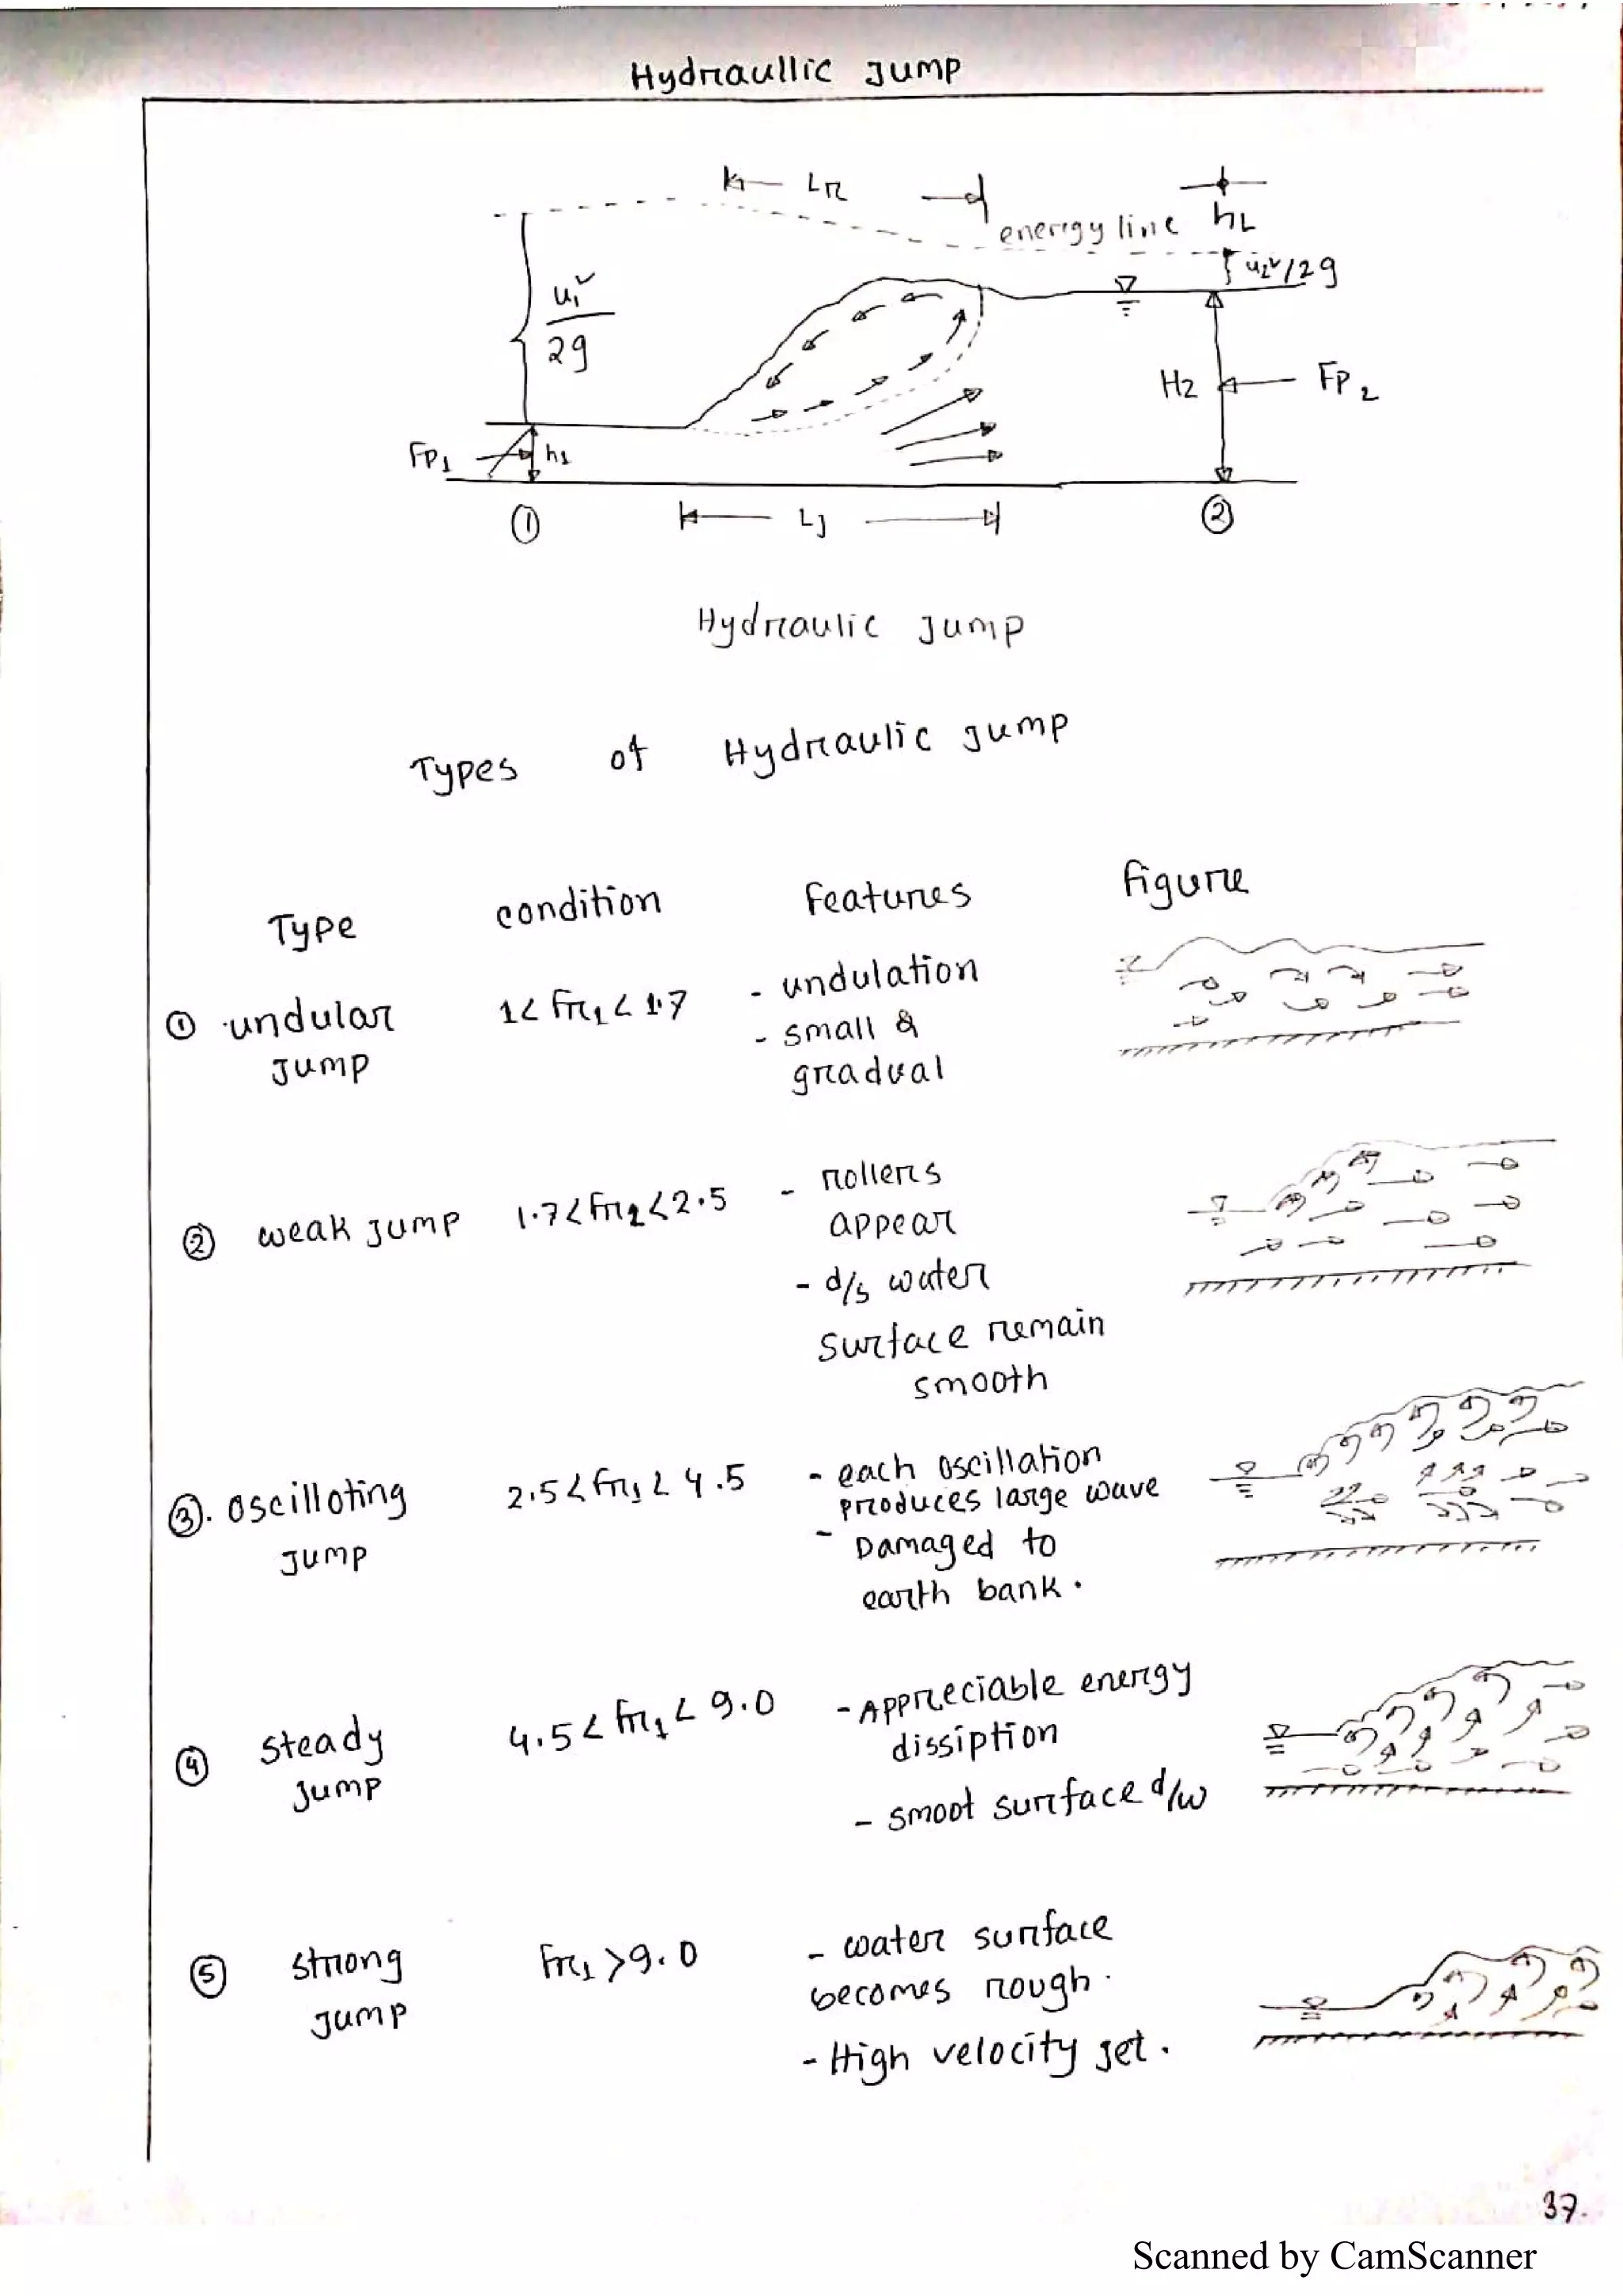 Hydraullic Jump
Lr
energy line hL
u₁²
2g
u₂²/2g
H2 FP2
FP1 h1
① Lj ②
Hydraulic Jump
Types of Hydraulic Jump
Type condition Features figure
① undular 1 < Fr1 < 1.7 - undulation
Jump - small & gradual
② weak Jump 1.7 < Fr2 < 2.5 - rollers
appear
- d/s water
surface remain
smooth
③. Oscilloting 2.5 < Fr1 < 4.5 - each oscillation
Jump produces large wave
- Damaged to
earth bank.
④ steady 4.5 < Fr1 < 9.0 - Appreciable energy
Jump dissiption
- smoot surface d/w
⑤ strong Fr1 > 9.0 - water surface
Jump becomes rough.
- High velocity jet.
37.
Scanned by CamScanner